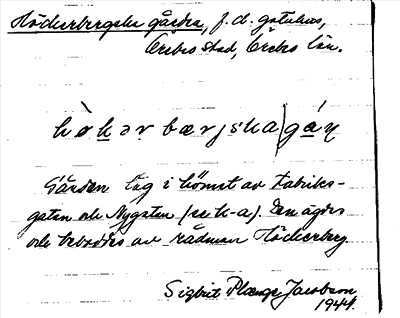 Höckerbergska gården, f. d. gatuhus,
Örebro stad, Örebro län.
hòkərbærjska|gáṇ
Gården låg i hörnet av Fabriks-
gatan och Nygatan (se k-a). Den ägdes
och beboddes av rådman Höckerberg
Sigbrit Plænge Jacobson
1944.